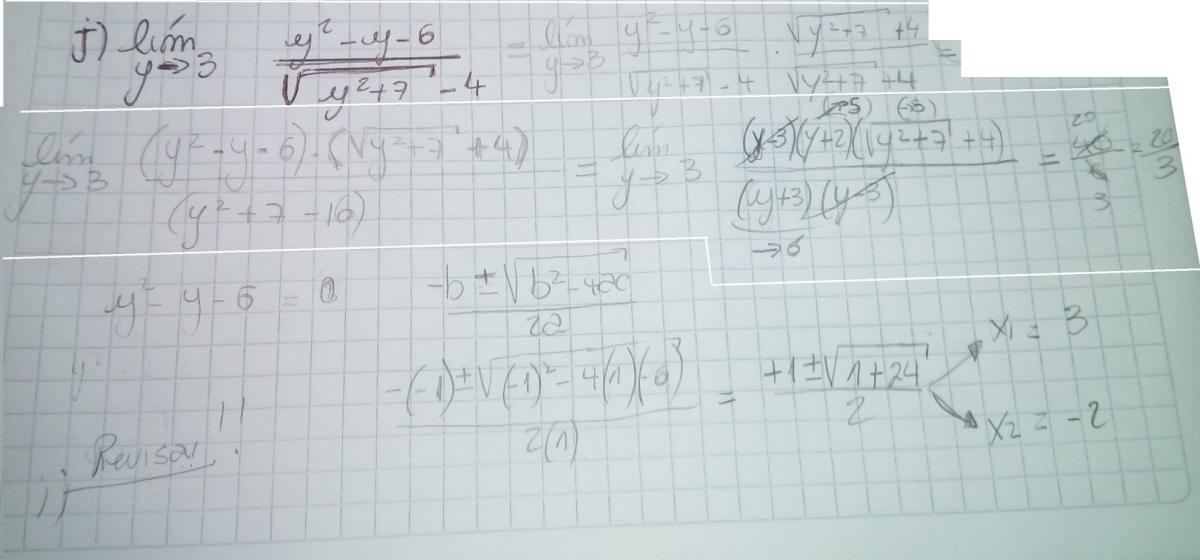 J) lím y→3 (y² - y - 6)/(√(y²+7) - 4) = lím y→3 (y² - y - 6)/(√(y²+7) - 4) · (√(y²+7) + 4)/(√(y²+7) + 4) =
lím y→3 (y² - y - 6) · (√(y²+7) + 4)/(y² + 7 - 16) = lím y→3 (y-3)(y+2)(√(y²+7) + 4)/((y+3)(y-3)) = 40/6 = 20/3
(→5) (→8)
20
3
→6
y² - y - 6 = 0 (-b ± √(b² - 4ac))/2a
y²
(-(-1) ± √((-1)² - 4(1)(-6)))/2(1) = (+1 ± √(1+24))/2
x1 = 3
x2 = -2
¡¡ Revisar !!